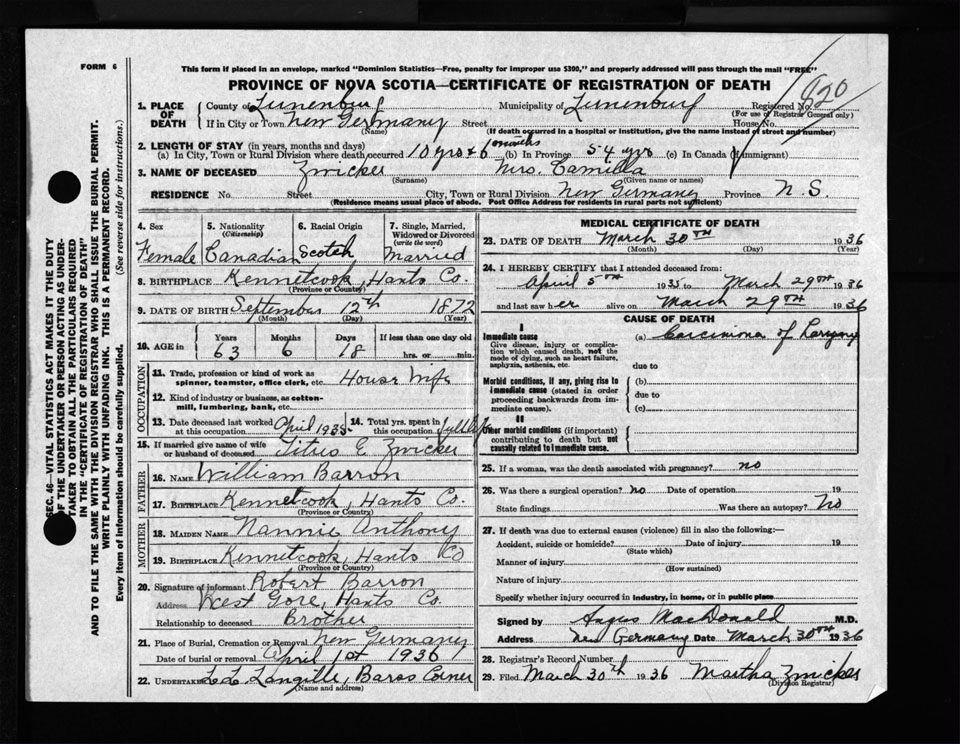 FORM 6
This form if placed in an envelope, marked "Dominion Statistics—Free, penalty for improper use $300," and properly addressed will pass through the mail "FREE"
PROVINCE OF NOVA SCOTIA—CERTIFICATE OF REGISTRATION OF DEATH
1. PLACE OF DEATH
County of Lunenburg Municipality of Lunenburg Registered No. 620
(For use of Registrar General only)
If in City or Town New Germany Street House No.
(Name) (If death occurred in a hospital or institution, give the name instead of street and number)
2. LENGTH OF STAY (in years, months and days)
(a) In City, Town or Rural Division where death occurred 10 yrs & 6 months (b) In Province 54 yrs (c) In Canada (if immigrant)
3. NAME OF DECEASED Zwicker Mrs. Camilla
(Surname) (Given name or names)
RESIDENCE No. Street City, Town or Rural Division New Germany Province N.S.
(Residence means usual place of abode. Post Office Address for residents in rural parts not sufficient)
4. Sex Female
5. Nationality (Citizenship) Canadian
6. Racial Origin Scotch
7. Single, Married, Widowed or Divorced (write the word) Married
8. BIRTHPLACE Kennetcook, Hants Co.
(Province or Country)
9. DATE OF BIRTH September 12th 1872
(Month) (Day) (Year)
10. AGE in Years 63 Months 6 Days 18 If less than one day old hrs. or min.
OCCUPATION
11. Trade, profession or kind of work as spinner, teamster, office clerk, etc. House Wife
12. Kind of industry or business, as cotton-mill, lumbering, bank, etc.
13. Date deceased last worked at this occupation April 1935
14. Total yrs. spent in this occupation
15. If married give name of wife or husband of deceased Titus E Zwicker
FATHER
16. NAME William Barron
17. BIRTHPLACE Kennetcook, Hants Co.
(Province or Country)
MOTHER
18. MAIDEN NAME Nannie Anthony
19. BIRTHPLACE Kennetcook, Hants Co
(Province or Country)
20. Signature of informant Robert Barron
Address West Gore, Hants Co.
Relationship to deceased Brother
21. Place of Burial, Cremation or Removal New Germany
Date of burial or removal April 1st 1936
22. UNDERTAKER L. L. Langille, Barss Corner
(Name and address)
MEDICAL CERTIFICATE OF DEATH
23. DATE OF DEATH March 30TH 1936
(Month) (Day) (Year)
24. I HEREBY CERTIFY that I attended deceased from:
April 5TH 1935 to March 29TH 1936
and last saw her alive on March 29TH 1936
CAUSE OF DEATH
I
Immediate cause (a) Carcinoma of Larynx
Give disease, injury or complication which caused death, not the mode of dying, such as heart failure, asphyxia, asthenia, etc.
due to
Morbid conditions, if any, giving rise to immediate cause (stated in order proceeding backwards from immediate cause).
(b)
due to
(c)
II
Other morbid conditions (if important) contributing to death but not causally related to immediate cause.
25. If a woman, was the death associated with pregnancy? no
26. Was there a surgical operation? no Date of operation 19
State findings Was there an autopsy? No
27. If death was due to external causes (violence) fill in also the following:—
Accident, suicide or homicide? Date of injury 19
(State which)
Manner of injury
(How sustained)
Nature of injury
Specify whether injury occurred in industry, in home, or in public place
Signed by Angus MacDonald M.D.
Address New Germany Date March 30TH 1936
28. Registrar's Record Number
29. Filed March 30th 1936 Martha Zwicker
(Division Registrar)
SEC. 46—VITAL STATISTICS ACT MAKES IT THE DUTY
OF THE UNDERTAKER OR PERSON ACTING AS UNDER-
TAKER TO OBTAIN ALL THE PARTICULARS REQUIRED
IN THE "CERTIFICATE OF REGISTRATION OF DEATH"
AND TO FILE THE SAME WITH THE DIVISION REGISTRAR WHO SHALL ISSUE THE BURIAL PERMIT.
WRITE PLAINLY WITH UNFADING INK. THIS IS A PERMANENT RECORD.
Every item of information should be carefully supplied. (See reverse side for instructions.)